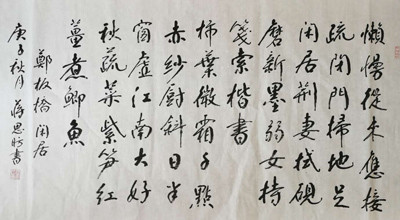 懶慢從來應接
疏閉門掃地足
閑居荆妻拭硯
磨新墨弱女持
箋索楷書
柿葉微霜千點
赤紗廚斜日半
窗虛江南大好
秋蔬菜紫筍紅
薑煮鯽魚
鄭板橋閑居
庚子秋月蔣思書